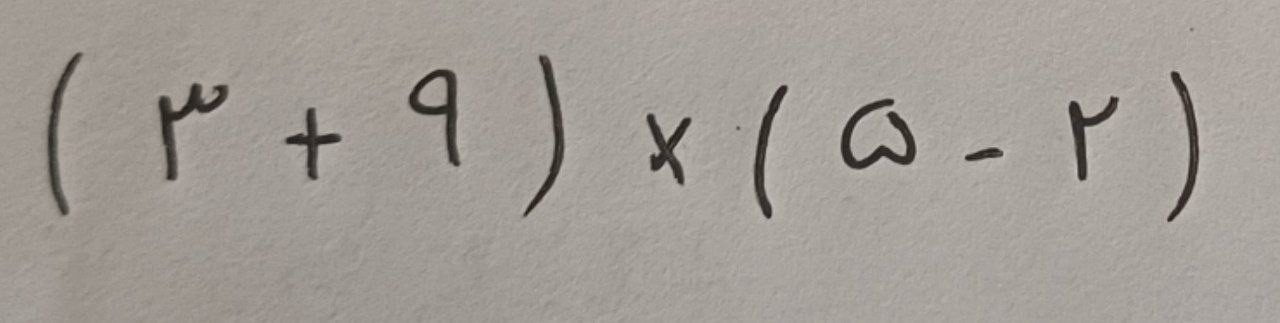 (۳ + ۹) × (۵ - ۲)